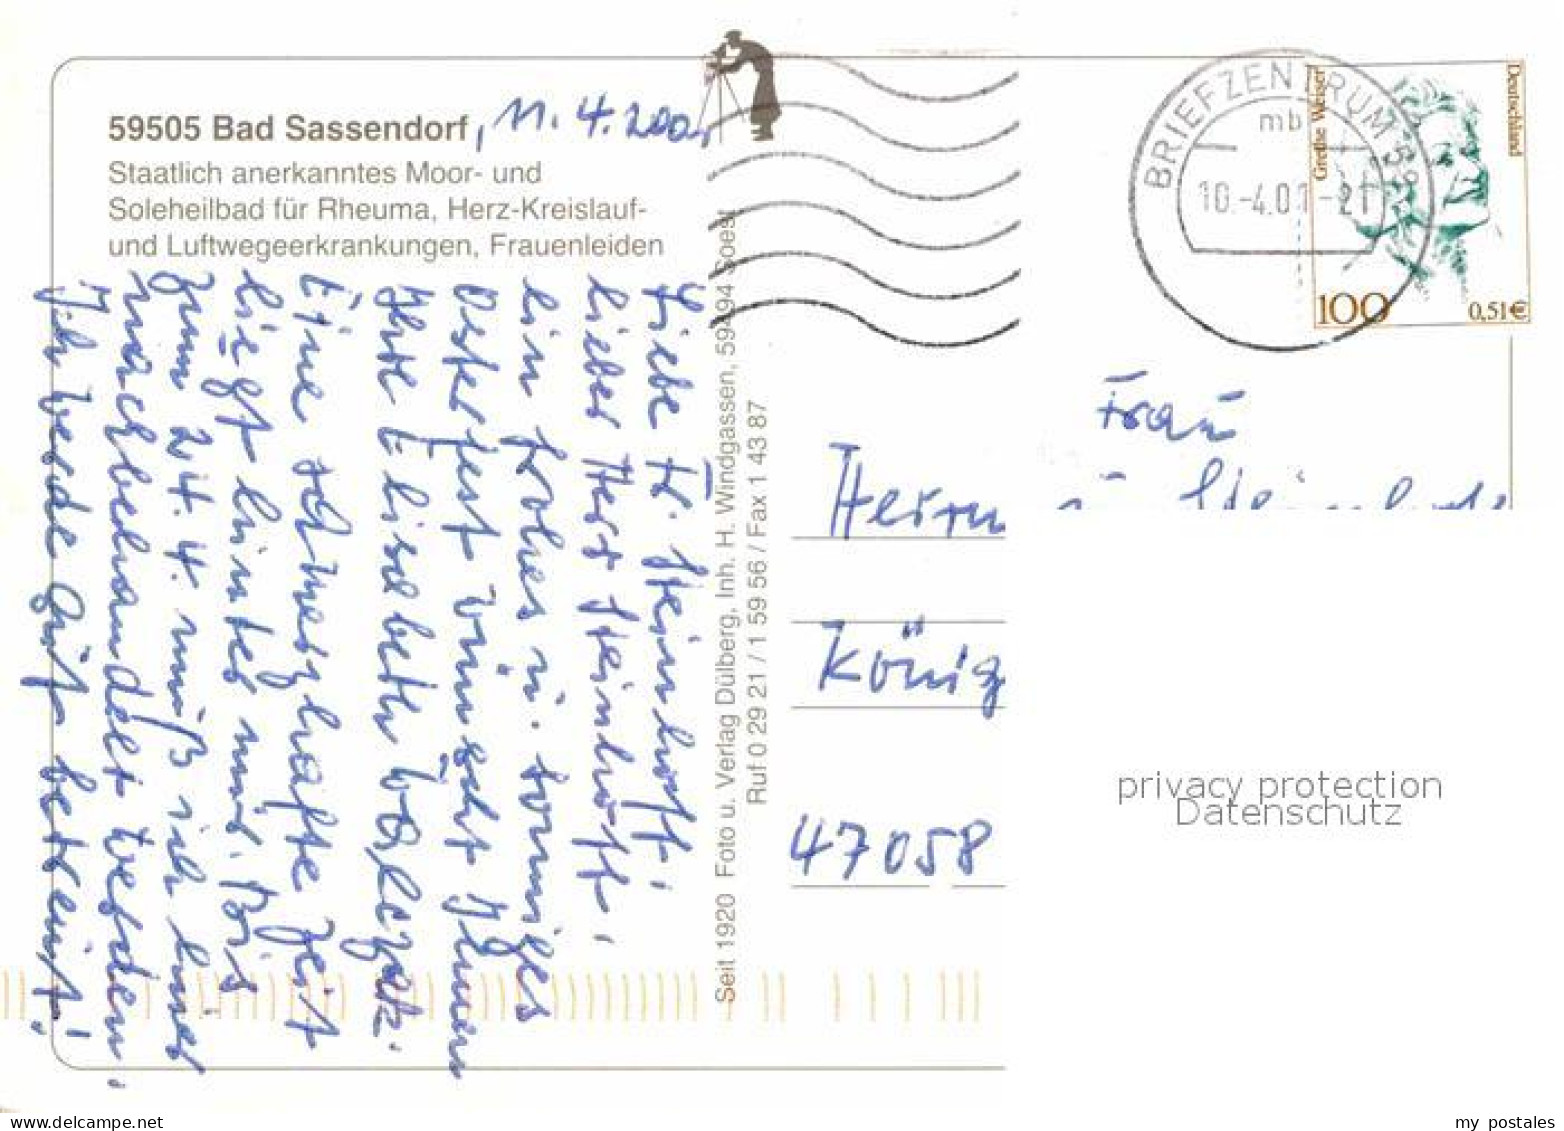 59505 Bad Sassendorf, 11.4.2001
Staatlich anerkanntes Moor- und
Soleheilbad für Rheuma, Herz-Kreislauf-
und Luftwegeerkrankungen, Frauenleiden
Liebe Fr. Steinhoff,
lieber Herr Steinhoff,
ein frohes u. sonniges
Osterfest wünscht Ihnen
Ihre Elisabeth
Eine schmerzhafte Zeit
liegt hinter mir. Bis
zum 24.4. muß ich hier
nachbehandelt werden.
Ich werde gut betreut!
Seit 1920 Foto u. Verlag Dülberg, Inh. H. Windgassen, 59494 Soest
Ruf 0 29 21 / 1 59 56 / Fax 1 43 87
BRIEFZENTRUM 59
mb
10.-4.01-21
Grethe Weiser
Deutschland
100
0,51€
Frau
Herrn
König
47058
privacy protection
Datenschutz
delcampe.net
my_postales